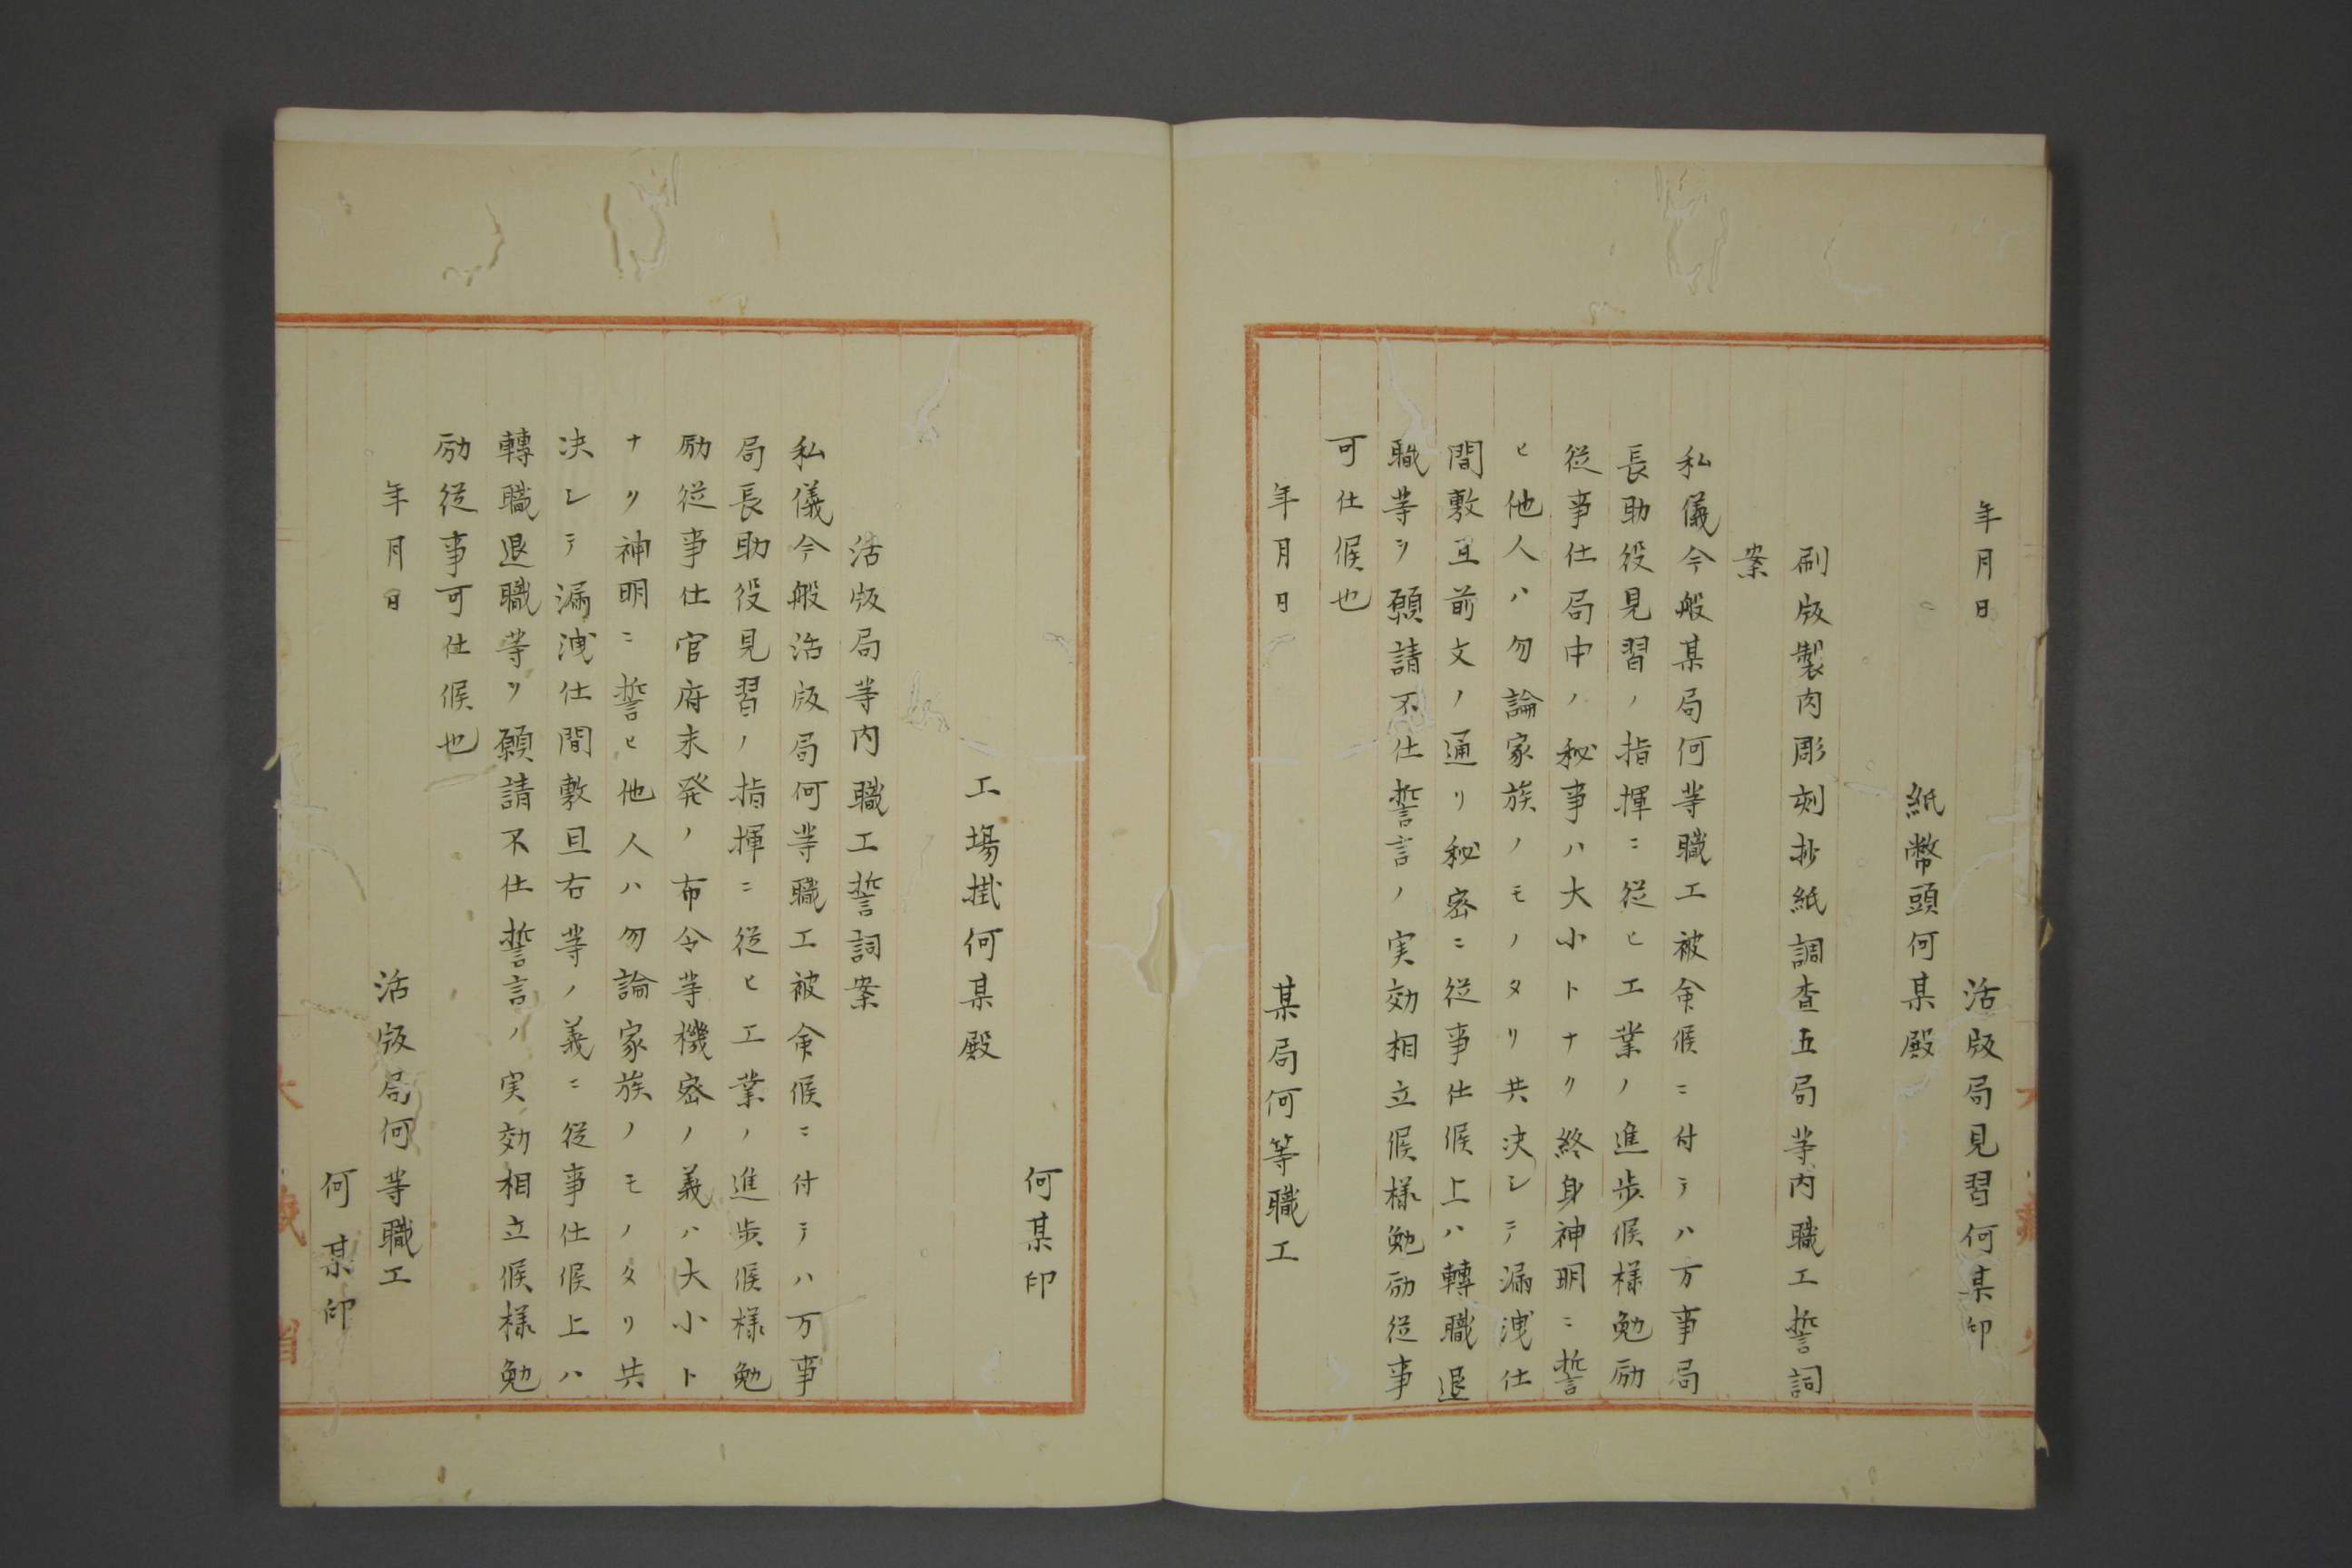 年月日
活版局見習何某印
紙幣頭何某殿
刷版製肉彫刻抄紙調査五局等内職工誓詞
案
私儀今般某局何等職工被命候ニ付テハ万事局
長助役見習ノ指揮ニ従ヒ工業ノ進歩候様勉励
従事仕局中ノ秘事ハ大小トナク終身神明ニ誓
ヒ他人ハ勿論家族ノモノタリ共決シテ漏洩仕
間敷且前文ノ通リ秘密ニ従事仕候上ハ轉職退
職等ヲ願請不仕誓言ノ実効相立候様勉励従事
可仕候也
年月日
某局何等職工
何某印
工場掛何某殿
活版局等内職工誓詞案
私儀今般活版局何等職工被命候ニ付テハ万事
局長助役見習ノ指揮ニ従ヒ工業ノ進歩候様勉
励従事仕官府未発ノ布令等機密ノ義ハ大小ト
ナク神明ニ誓ヒ他人ハ勿論家族ノモノタリ共
決シテ漏洩仕間敷且右等ノ義ニ従事仕候上ハ
轉職退職等ヲ願請不仕誓言ノ実効相立候様勉
励従事可仕候也
年月日
活版局何等職工
何某印